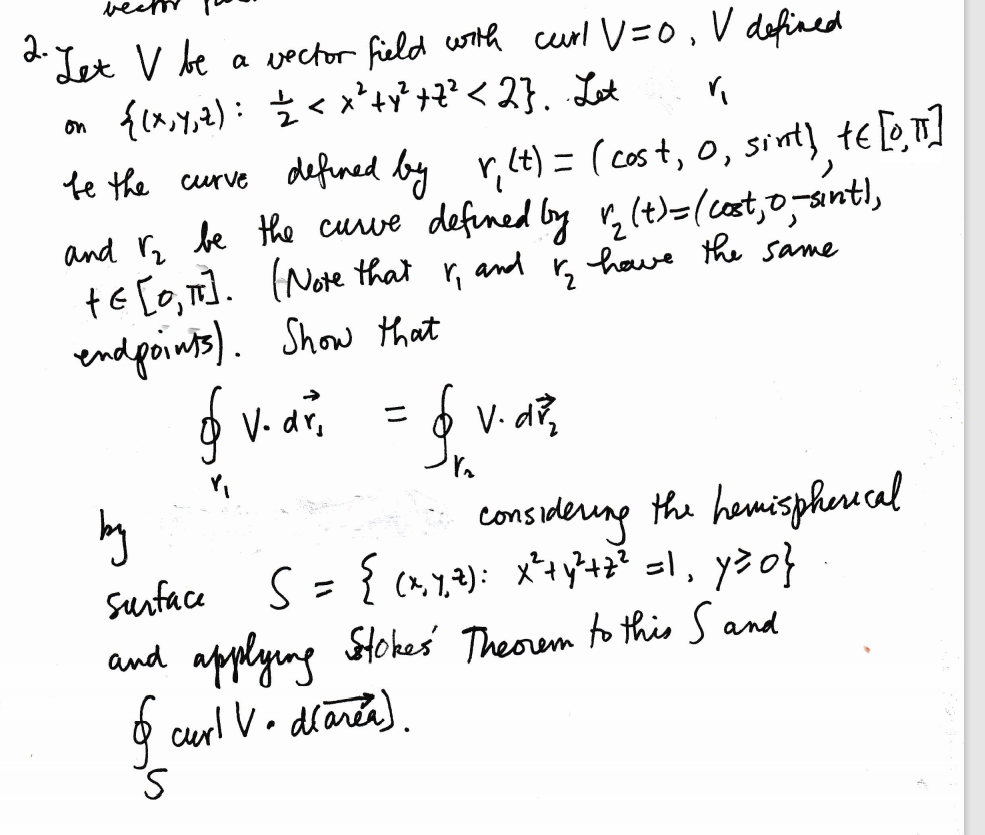 vector
2. Let V be a vector field with curl V=0, V defined
on {(x,y,z): 1/2 < x²+y²+z² < 2}. Let r₁
be the curve defined by r₁(t) = (cos t, 0, sint), t∈[0,π],
and r₂ be the curve defined by r₂(t)=(cost,0,-sint),
t∈[0,π]. (Note that r₁ and r₂ have the same
endpoints). Show that
∮_r₁ V·dr⃗₁ = ∮_r₂ V·dr⃗₂
by considering the hemispherical
surface S = { (x,y,z): x²+y²+z²=1, y≥0}
and applying Stokes' Theorem to this S and
∮_S curl V · d(area→).